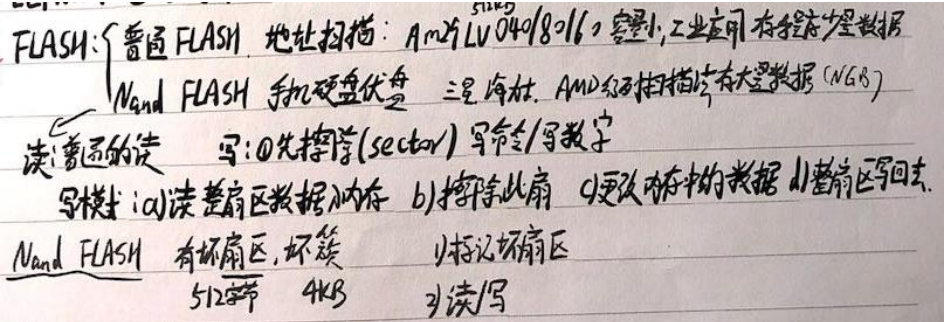 512KB
FLASH: 普通FLASH 地址扫描: Am29LV040/80/160 容量小,工业应用 存程序少量数据
Nand FLASH 手机硬盘优盘 三星 海力士. AMD 扫描读 存大量数据 (NGB)
读:普通的读 写:①先擦除(sector) 写命令/写数字
写模式:a)读整扇区数据入内存 b)擦除此扇 c)更改内存中的数据 d)整扇区写回去.
Nand FLASH 有坏扇区,坏簇 1)标记坏扇区
512字节 4KB 2)读/写